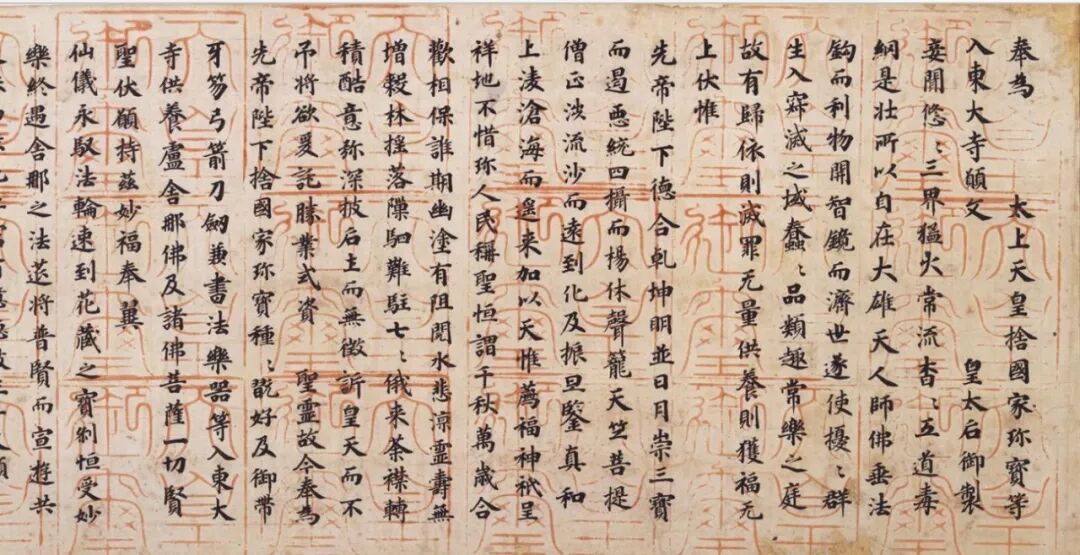 奉為　　太上天皇捨國家珎寶等
入東大寺願文　　皇太后御製
妾聞悠〻三界猛火常流杳〻五道毒
網是壯所以自在大雄天人師佛垂法
鈎而利物開智鏡而濟世遂使擾〻群
生入寂滅之域蠢〻品類趣常樂之庭
故有歸依則滅罪无量供養則獲福无
上伏惟
先帝陛下德合乹坤明並日月崇三寶
而遏惡統四攝而楊休聲籠天竺菩提
僧正涉流沙而遠到化及振旦鑒真和
上淩滄海而遙来加以天惟薦福神祇呈
祥地不惜珎人民稱聖恒謂千秋萬歲合
歡相保誰期幽塗有阻閱水悲凉靈壽無
增穀林揺落隟駟難駐七〻俄来荼襟轉
積酷意弥深披后土而無徵訴皇天而不
弔將欲爰託勝業式資　聖靈故今奉為
先帝陛下捨國家珎寶種〻翫好及御帶
牙笏弓箭刀劒兼書法樂器等入東大
寺供養盧舍那佛及諸佛菩薩一切賢
聖伏願持茲妙福奉翼
仙儀永馭法輪速到花藏之寶刹恒受妙
樂終遇舍那之法莚將普賢而宣遊共